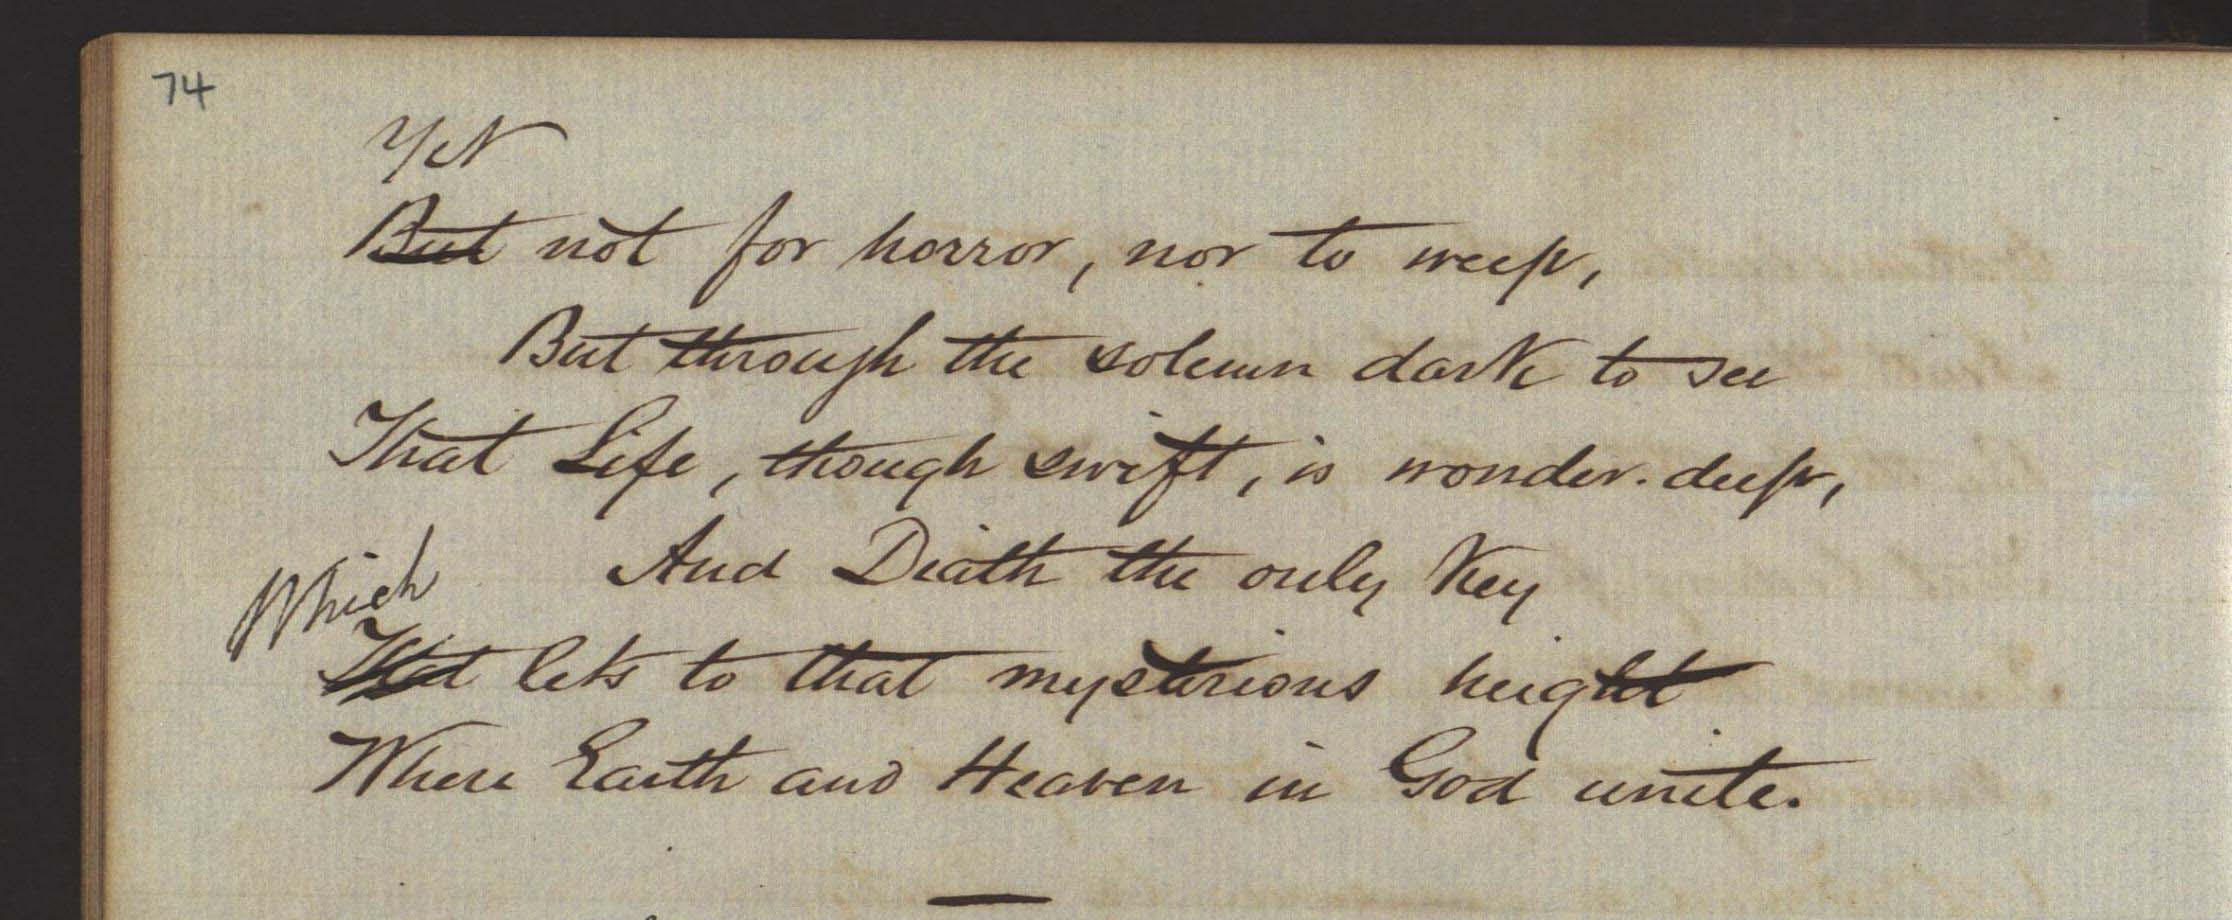 74
Yet
But not for horror, nor to weep,
But through the solemn dark to see
That Life, though swift, is wonder-deep,
And Death the only Key
Which
That lets to that mysterious height
Where Earth and Heaven in God unite.